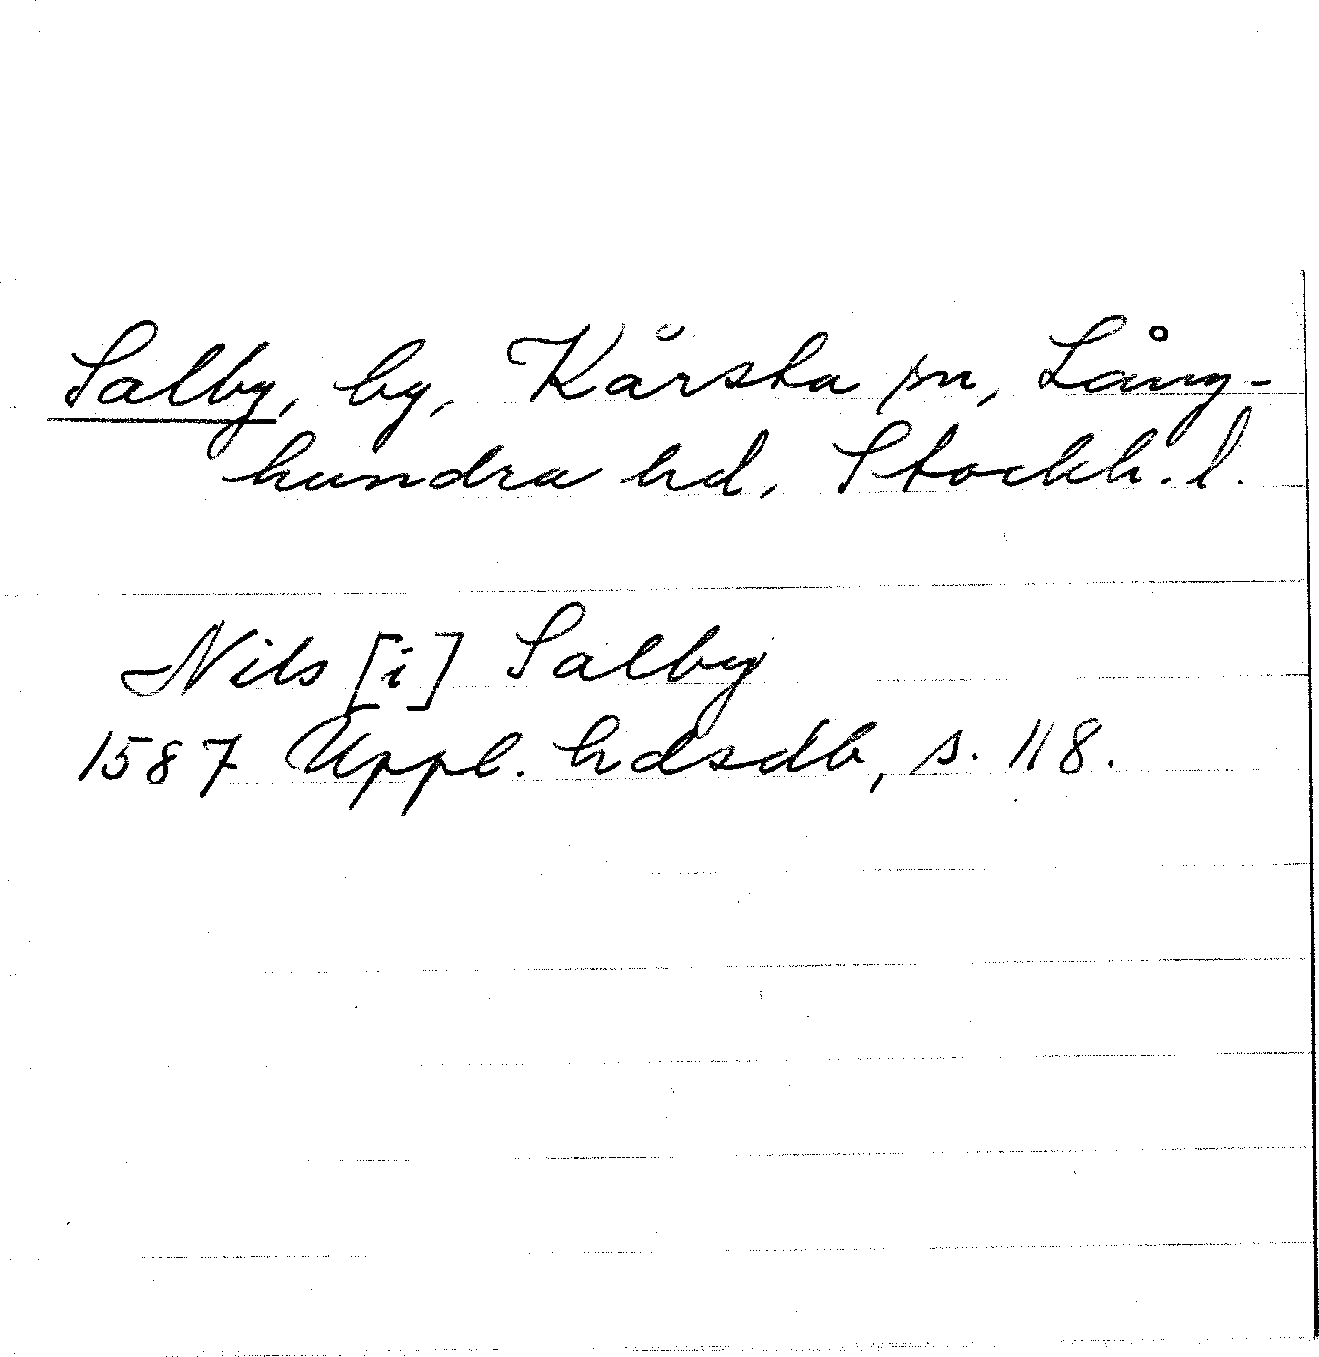 Salby, by, Kårsta sn, Lång-
hundra hd, Stockh. l.
Nils [i] Salby
1587 Uppl. hdsdb, s. 118.